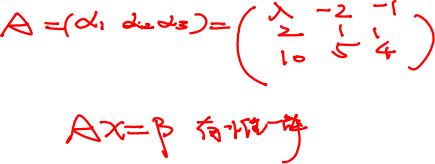 A=(α₁ α₂ α₃)=(λ -2 -1
2 1 1
10 5 4)
Ax=β 有唯一解